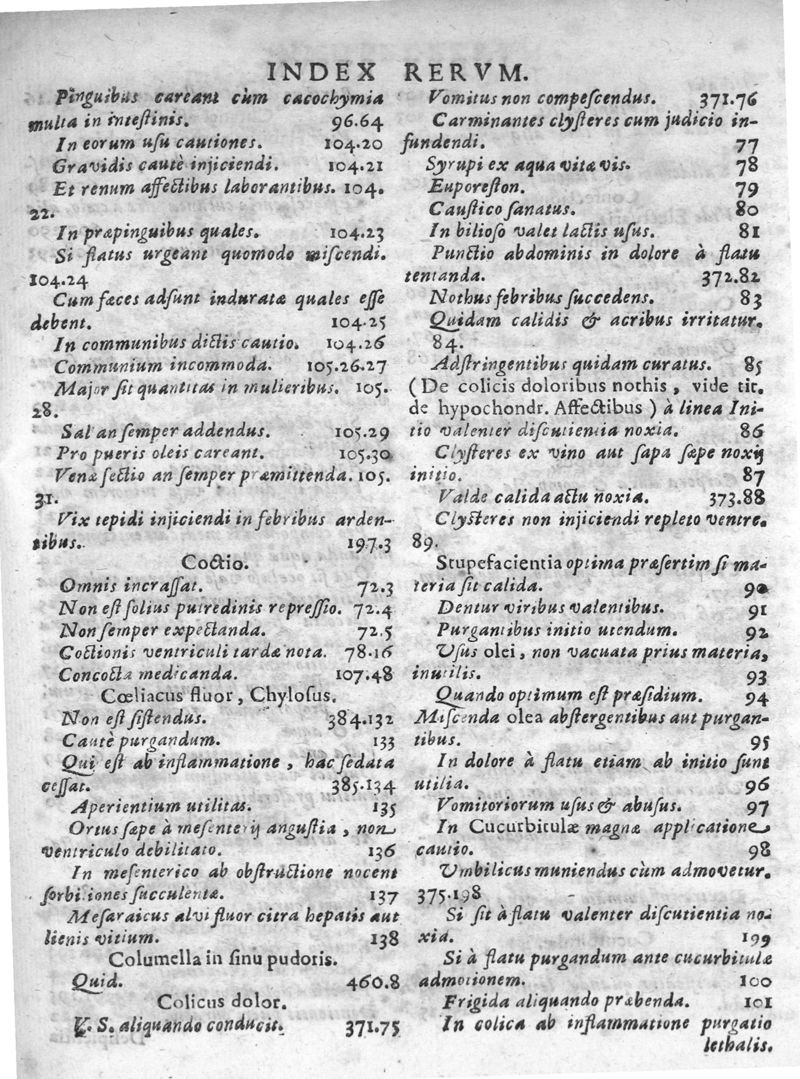 INDEX RERVM.
Pinguibus careant cùm cacochymia
multa in intestinis. 96.64
In eorum usu cautiones. 104.20
Gravidis cautè injiciendi. 104.21
Et renum affectibus laborantibus. 104.
22.
In præpinguibus quales. 104.23
Si flatus urgeant quomodo miscendi.
104.24
Cum fæces adsunt induratæ quales esse
debent. 104.25
In communibus dictis cautio. 104.26
Communium incommoda. 105.26.27
Major sit quantitas in mulieribus. 105.
28.
Sal an semper addendus. 105.29
Pro pueris oleis careant. 105.30
Venæ sectio an semper præmittenda. 105.
31.
Vix tepidi injiciendi in febribus arden-
tibus. 197.3
Coctio.
Omnis incrassat. 72.3
Non est solius putredinis repressio. 72.4
Non semper expectanda. 72.5
Coctionis ventriculi tardæ nota. 78.16
Concocta medicanda. 107.48
Cœliacus fluor, Chylosus.
Non est sistendus. 384.132
Cautè purgandum. 133
Qui est ab inflammatione, hac sedata
cessat. 385.134
Aperientium utilitas. 135
Ortus sæpe à mesenterij angustia, non
ventriculo debilitato. 136
In mesenterico ab obstructione nocent
sorbitiones succulentæ. 137
Mesaraicus alvi fluor citra hepatis aut
lienis vitium. 138
Columella in sinu pudoris.
Quid. 460.8
Colicus dolor.
V. S. aliquando conducit. 371.75
Vomitus non compescendus. 371.76
Carminantes clysteres cum judicio in-
fundendi. 77
Syrupi ex aqua vitæ vis. 78
Euporeston. 79
Caustico sanatus. 80
In bilioso valet lactis usus. 81
Punctio abdominis in dolore à flatu
tentanda. 372.82
Nothus febribus succedens. 83
Quidam calidis & acribus irritatur.
84.
Adstringentibus quidam curatus. 85
(De colicis doloribus nothis, vide tit.
de hypochondr. Affectibus) à linea Ini-
tio valenter discutientia noxia. 86
Clysteres ex vino aut sapa sæpe noxij
initio. 87
Valde calida actu noxia. 373.88
Clysteres non injiciendi repleto ventre.
89.
Stupefacientia optima præsertim si ma-
teria sit calida. 90
Dentur viribus valentibus. 91
Purgantibus initio utendum. 92
Usus olei, non vacuata prius materia,
inutilis. 93
Quando optimum est præsidium. 94
Miscenda olea abstergentibus aut purgan-
tibus. 95
In dolore à flatu etiam ab initio sunt
utilia. 96
Vomitoriorum usus & abusus. 97
In Cucurbitulæ magnæ applicatione
cautio. 98
Umbilicus muniendus cùm admovetur.
375.198
Si sit à flatu valenter discutientia no-
xia. 199
Si à flatu purgandum ante cucurbitulæ
admotionem. 100
Frigida aliquando præbenda. 101
In colica ab inflammatione purgatio
lethalis.